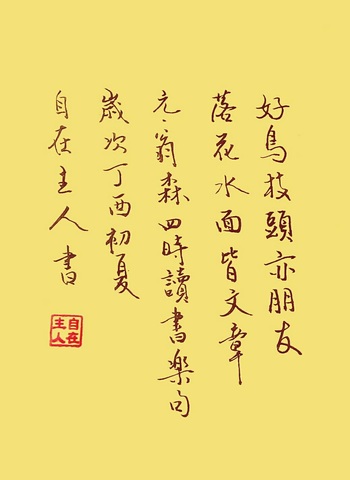 好鳥枝頭亦朋友
落花水面皆文章
元·翁森四時讀書樂句
歲次丁酉初夏
自在主人書
自在主人